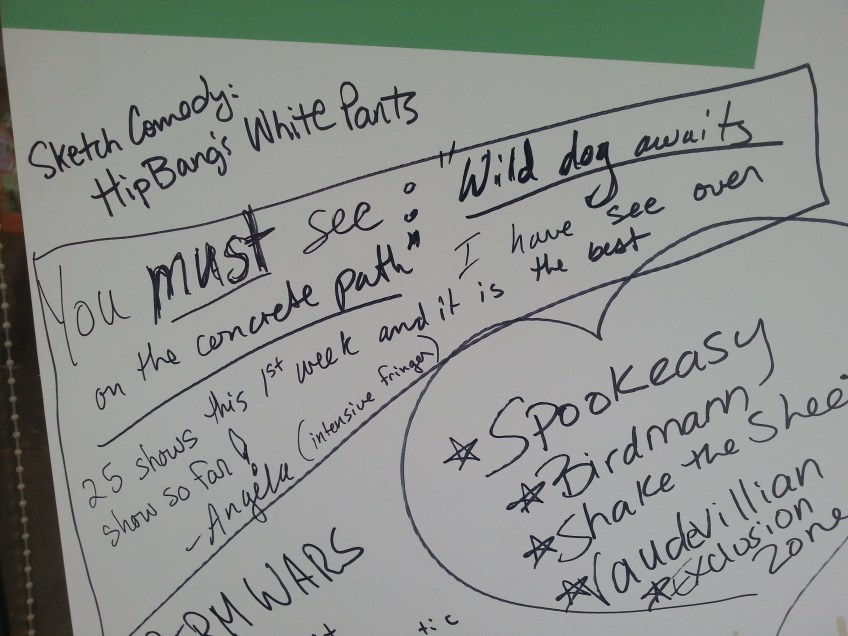 Sketch Comedy:
HipBang's White Pants
You must see: "Wild dog awaits
on the concrete path" I have see over
25 shows this 1st week and it is the best
show so far!
- Angela (intensive fringer)
Spookeasy
Birdmann
Shake the
Vaudevillian
Exclusion
Zone
WARS